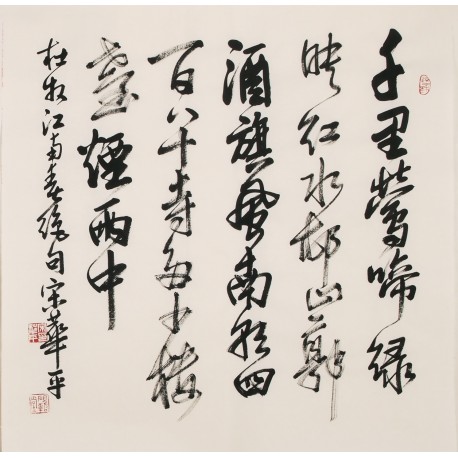 千里莺啼绿
映红水邨山郭
酒旗风南朝四
百八十寺多少楼
台烟雨中
杜牧江南春绝句宋华平